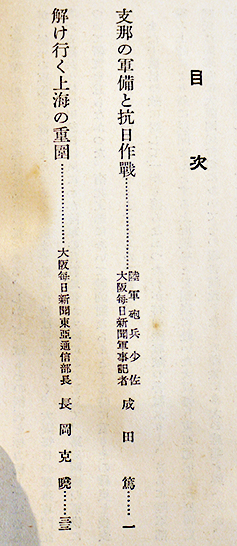 目次
支那の軍備と抗日作戰……………………陸軍砲兵少佐 大阪毎日新聞軍事記者 成田篤……一
解け行く上海の重圍……………………大阪毎日新聞東亞通信部長 長岡克曉……三三